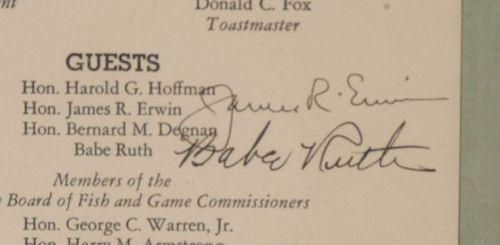 nt Donald C. Fox
Toastmaster
GUESTS
Hon. Harold G. Hoffman
Hon. James R. Erwin James R. Erwin
Hon. Bernard M. Degnan
Babe Ruth Babe Ruth
Members of the
Board of Fish and Game Commissioners
Hon. George C. Warren, Jr.
Hon. Harry M. Armstrong